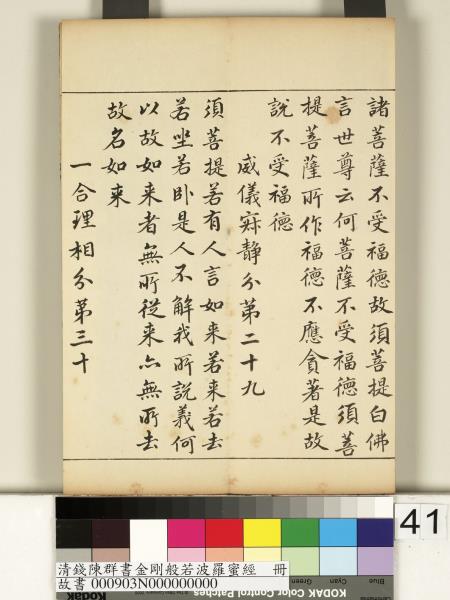 諸菩薩不受福德故須菩提白佛
言世尊云何菩薩不受福德須菩
提菩薩所作福德不應貪著是故
說不受福德
威儀寂静分第二十九
須菩提若有人言如来若来若去
若坐若卧是人不解我所說義何
以故如来者無所從来亦無所去
故名如来
一合理相分第三十
41
清錢陳群書金剛般若波羅蜜經 冊
故書 000903N000000000
KODAK Color Control Patches
Blue
Cyan
Green
Kodak